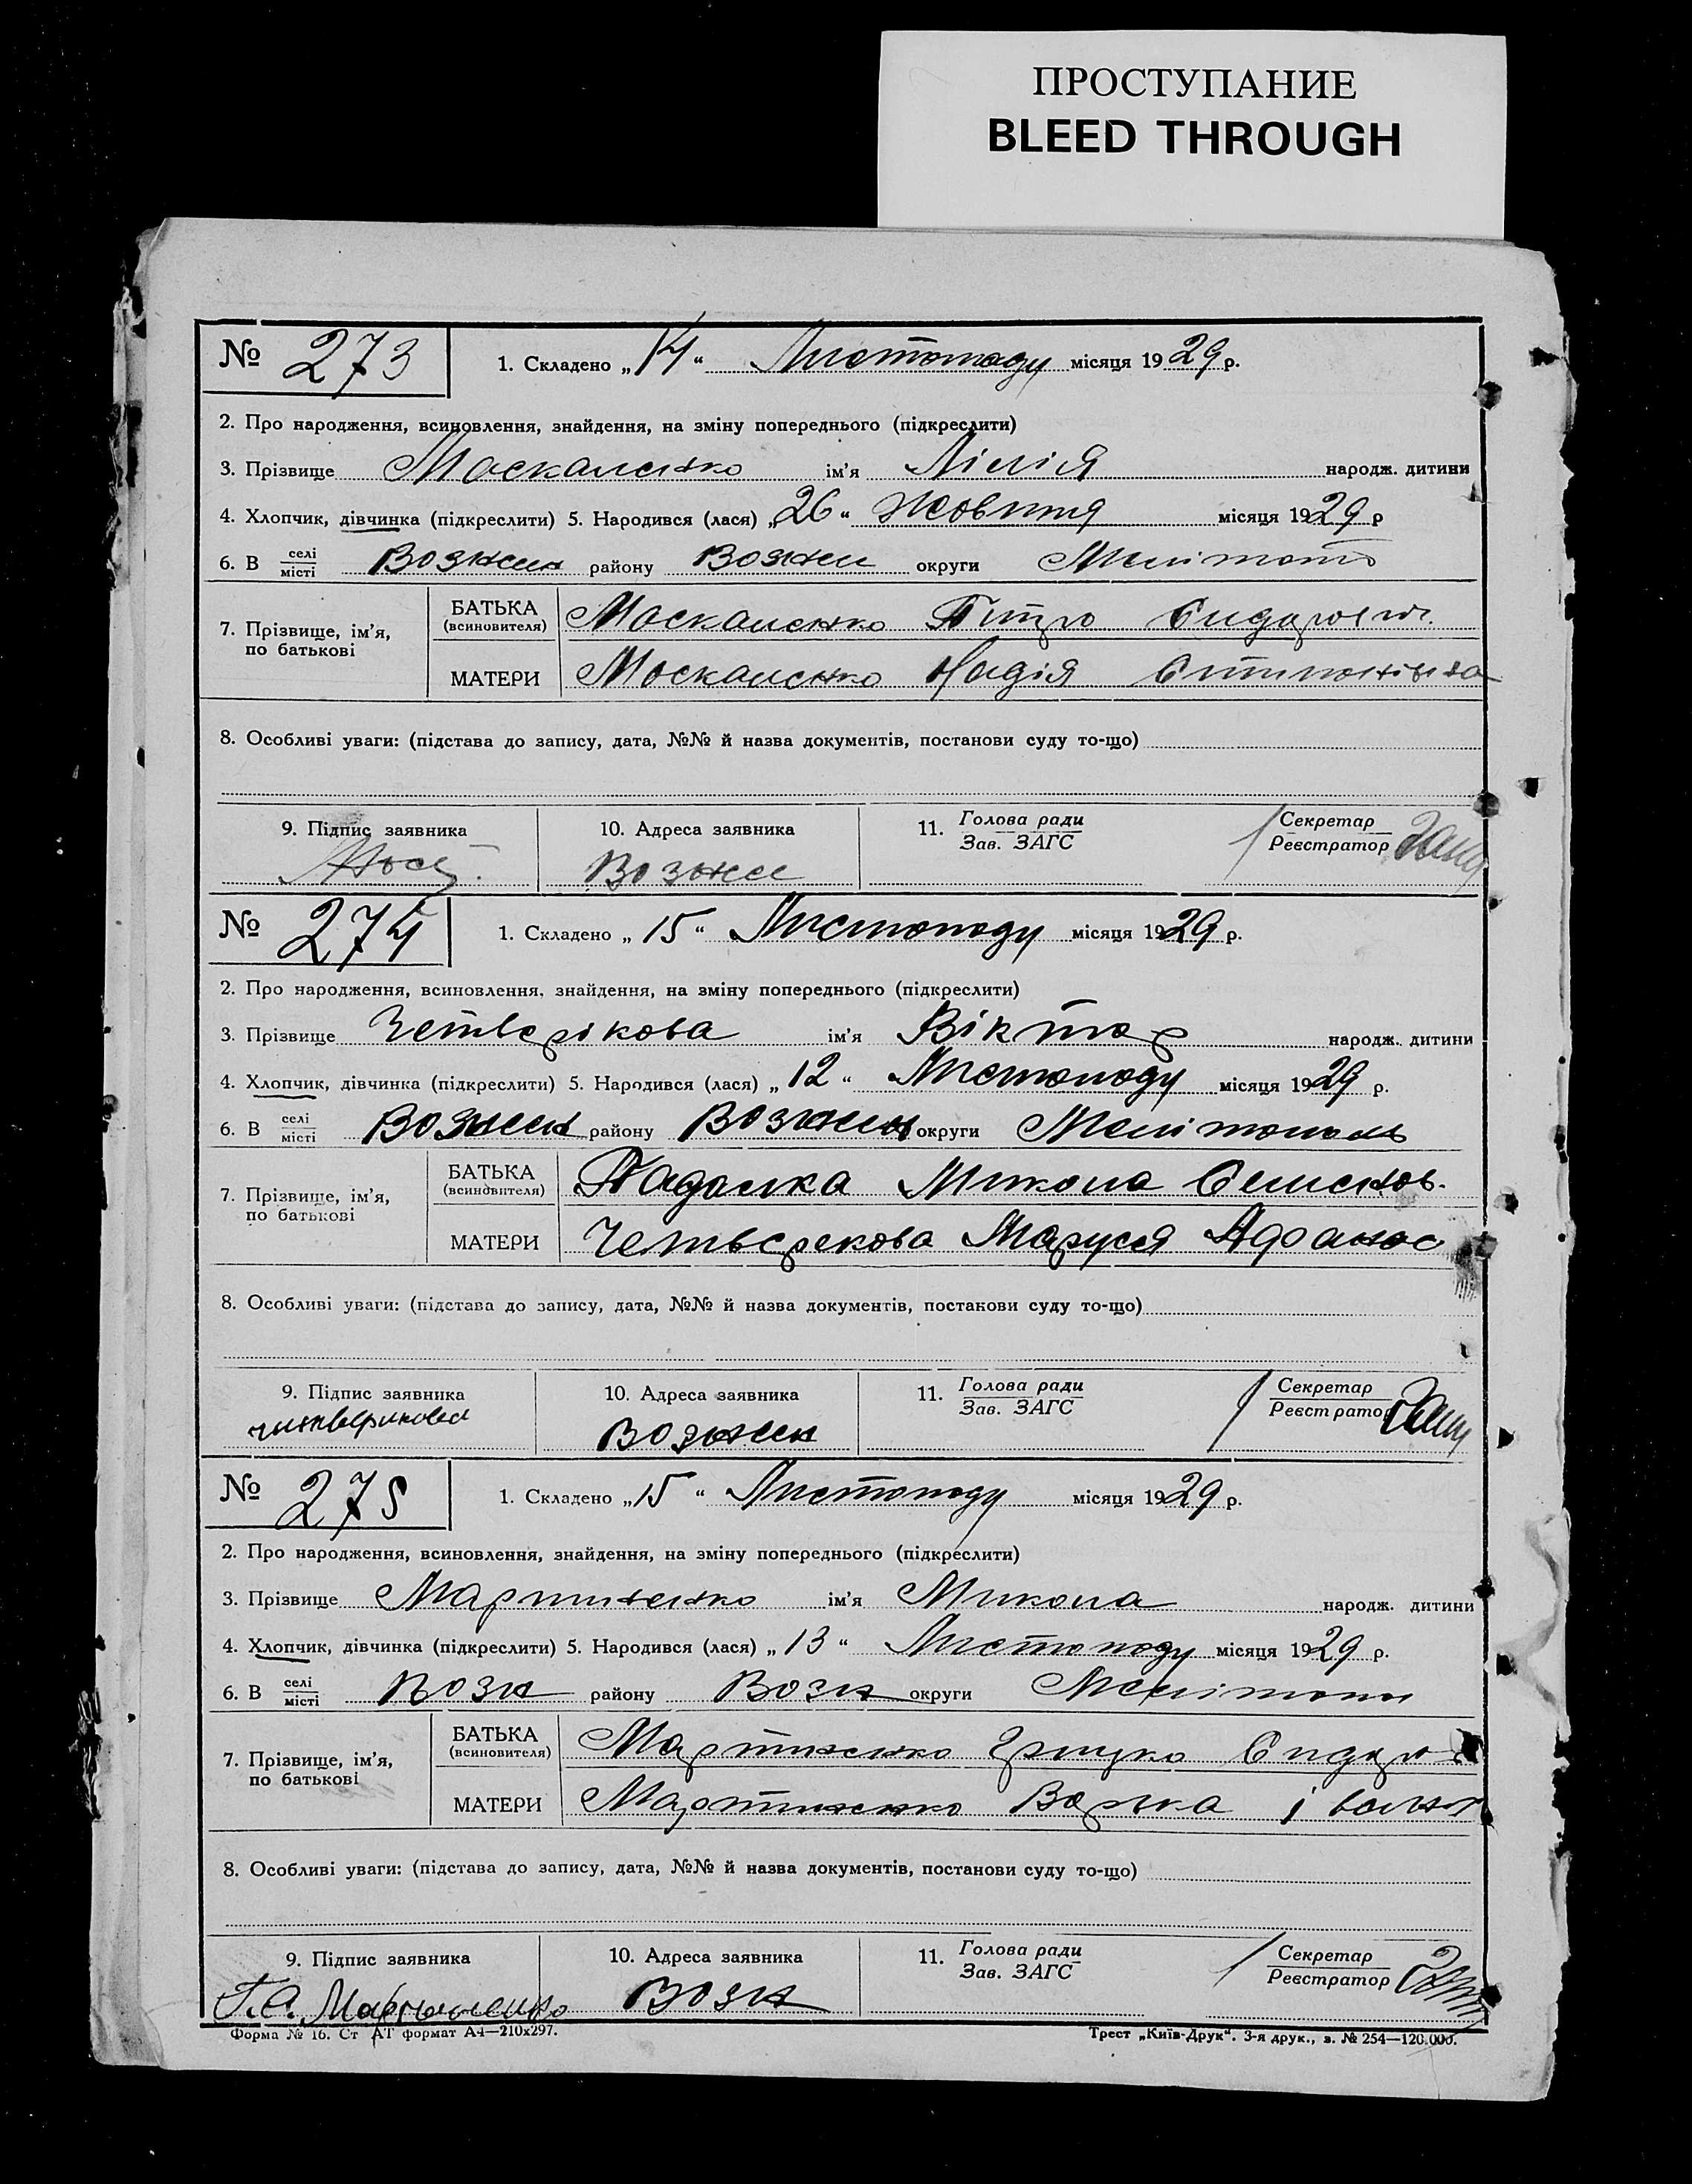 ПРОСТУПАНИЕ
BLEED THROUGH
№ 273 1. Складено „14“ Листопаду місяця 1929 р.
2. Про народження, всиновлення, знайдення, на зміну попереднього (підкреслити)
3. Прізвище Москаленко ім'я Лілія народж. дитини
4. Хлопчик, дівчинка (підкреслити) 5. Народився (лася) „26“ Жовтня місяця 1929 р
6. В селі/місті району округи Мелітоп
7. Прізвище, ім'я, по батькові
БАТЬКА (всиновителя) Москаленко Питро Сидорович
МАТЕРИ Москаленко Надія
8. Особливі уваги: (підстава до запису, дата, №№ й назва документів, постанови суду то-що)
9. Підпис заявника 10. Адреса заявника 11. Голова ради Секретар
Зав. ЗАГС Реєстратор
Возн
№ 274 1. Складено „15“ Листопаду місяця 1929 р.
2. Про народження, всиновлення, знайдення, на зміну попереднього (підкреслити)
3. Прізвище Четверікова ім'я Віктор народж. дитини
4. Хлопчик, дівчинка (підкреслити) 5. Народився (лася) „12“ Листопаду місяця 1929 р.
6. В селі/місті району округи Мелітополь
7. Прізвище, ім'я, по батькові
БАТЬКА (всиновителя) Падалка Микола Семенов.
МАТЕРИ Четверекова Маруся Афанас
8. Особливі уваги: (підстава до запису, дата, №№ й назва документів, постанови суду то-що)
9. Підпис заявника 10. Адреса заявника 11. Голова ради Секретар
Зав. ЗАГС Реєстратор
читверикова
№ 275 1. Складено „15“ Листопаду місяця 1929 р.
2. Про народження, всиновлення, знайдення, на зміну попереднього (підкреслити)
3. Прізвище Мартиненко ім'я Микола народж. дитини
4. Хлопчик, дівчинка (підкреслити) 5. Народився (лася) „13“ Листопаду місяця 1929 р.
6. В селі/місті Возн району Возн округи Мелітопол
7. Прізвище, ім'я, по батькові
БАТЬКА (всиновителя) Мартиненко Грицко Сидоров
МАТЕРИ Мартиненко Варка івановн
8. Особливі уваги: (підстава до запису, дата, №№ й назва документів, постанови суду то-що)
9. Підпис заявника 10. Адреса заявника 11. Голова ради Секретар
Зав. ЗАГС Реєстратор
Г. С. Мартыненко Возн
Форма № 16. Ст АТ формат А4—210х297. Трест „Київ-Друк“. 3-я друк., з. № 254—120.000.